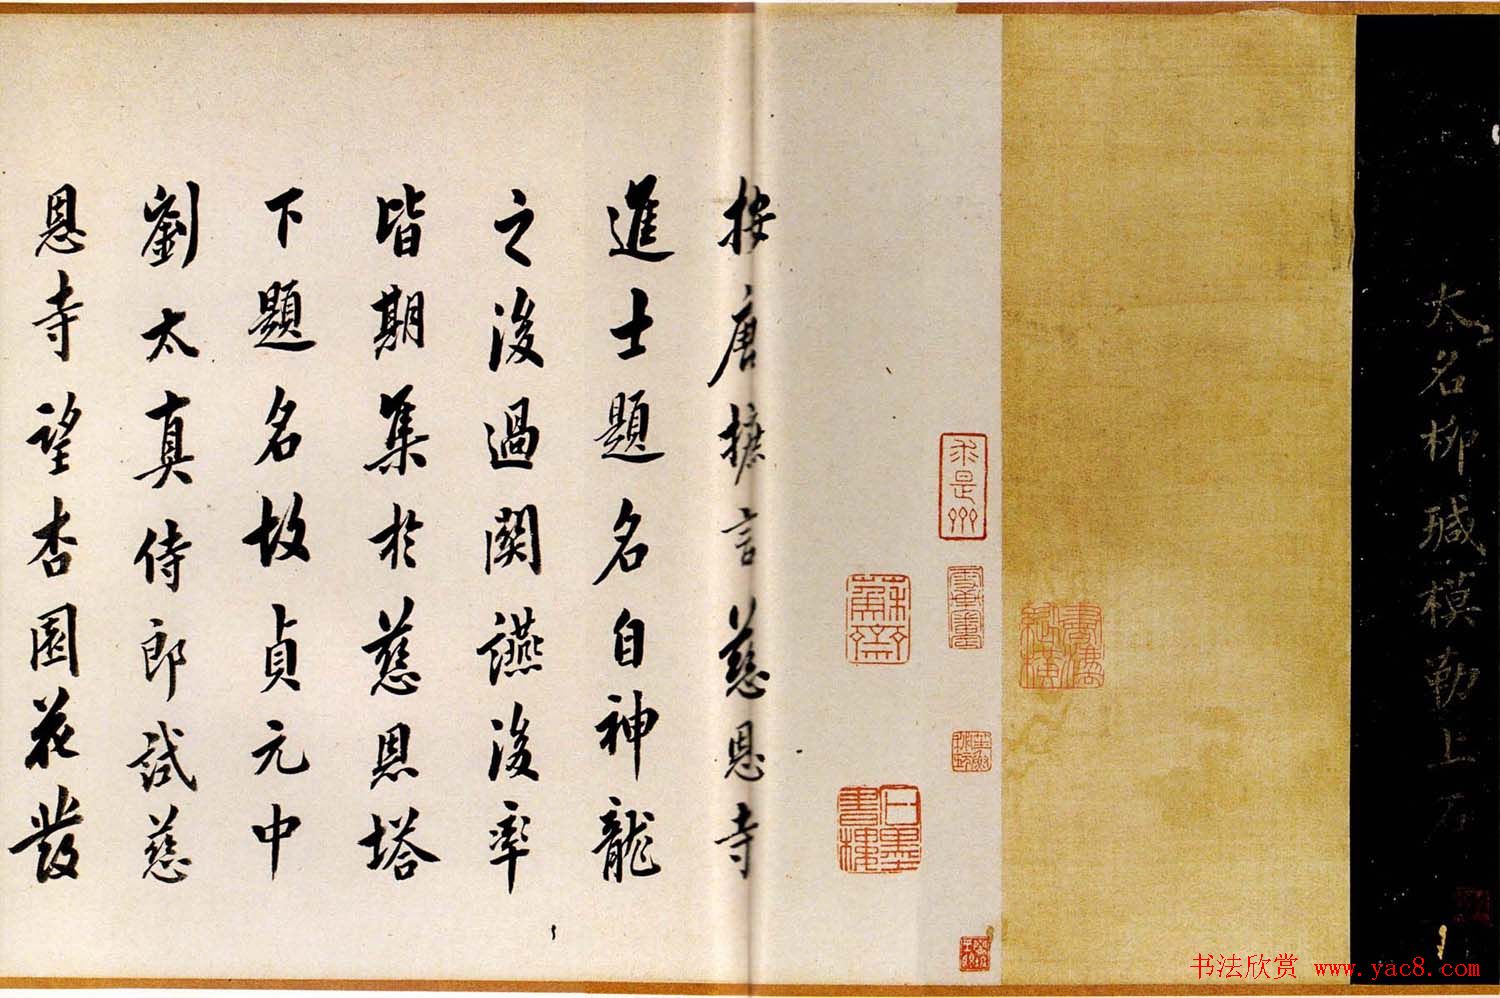 大名柳瑊模勒上石
蘇齋
石墨書樓
按唐摭言慈恩寺
進士題名自神龍
之後過關讌後率
皆期集於慈恩塔
下題名故貞元中
劉太真侍郎試慈
恩寺望杏園花發
书法欣赏 www.yac8.com